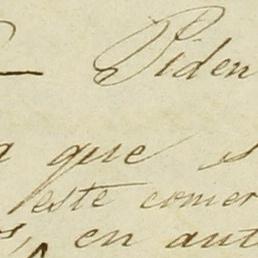 Piden
a que s
este comer
s, en aut